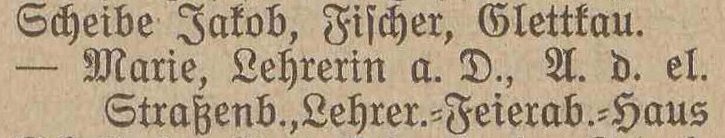 Scheibe Jakob, Fischer, Glettkau.
— Marie, Lehrerin a. D., A. d. el.
Straßenb.,Lehrer.=Feierab.=Haus